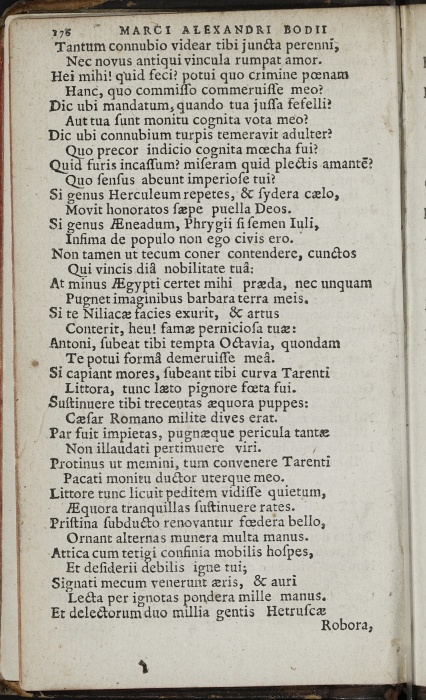 176 MARCI ALEXANDRI BODII
Tantum connubio videar tibi juncta perenni,
Nec novus antiqui vincula rumpat amor.
Hei mihi! quid feci? potui quo crimine pœnam
Hanc, quo commiſſo commeruiſſe meo?
Dic ubi mandatum, quando tua juſſa fefelli?
Aut tua ſunt monitu cognita vota meo?
Dic ubi connubium turpis temeravit adulter?
Quo precor indicio cognita mœcha fui?
Quid furis incaſſum? miſeram quid plectis amantẽ?
Quo ſenſus abeunt imperioſe tui?
Si genus Herculeum repetes, & ſydera cælo,
Movit honoratos ſæpe puella Deos.
Si genus Æneadum, Phrygii ſi ſemen Iuli,
Infima de populo non ego civis ero.
Non tamen ut tecum coner contendere, cunctos
Qui vincis diâ nobilitate tuâ:
At minus Ægypti certet mihi præda, nec unquam
Pugnet imaginibus barbara terra meis.
Si te Niliacæ facies exurit, & artus
Conterit, heu! famæ pernicioſa tuæ:
Antoni, ſubeat tibi tempta Octavia, quondam
Te potui formâ demeruiſſe meâ.
Si capiant mores, ſubeant tibi curva Tarenti
Littora, tunc læto pignore fœta fui.
Suſtinuere tibi trecentas æquora puppes:
Cæſar Romano milite dives erat.
Par fuit impietas, pugnæque pericula tantæ
Non illaudati pertimuere viri.
Protinus ut memini, tum convenere Tarenti
Pacati monitu ductor uterque meo.
Littore tunc licuit peditem vidiſſe quietum,
Æquora tranquillas ſuſtinuere rates.
Priſtina ſubducto renovantur fœdera bello,
Ornant alternas munera multa manus.
Attica cum tetigi confinia mobilis hoſpes,
Et deſiderii debilis igne tui;
Signati mecum venerunt æris, & auri
Lecta per ignotas pondera mille manus.
Et delectorum duo millia gentis Hetruſcæ
Robora,